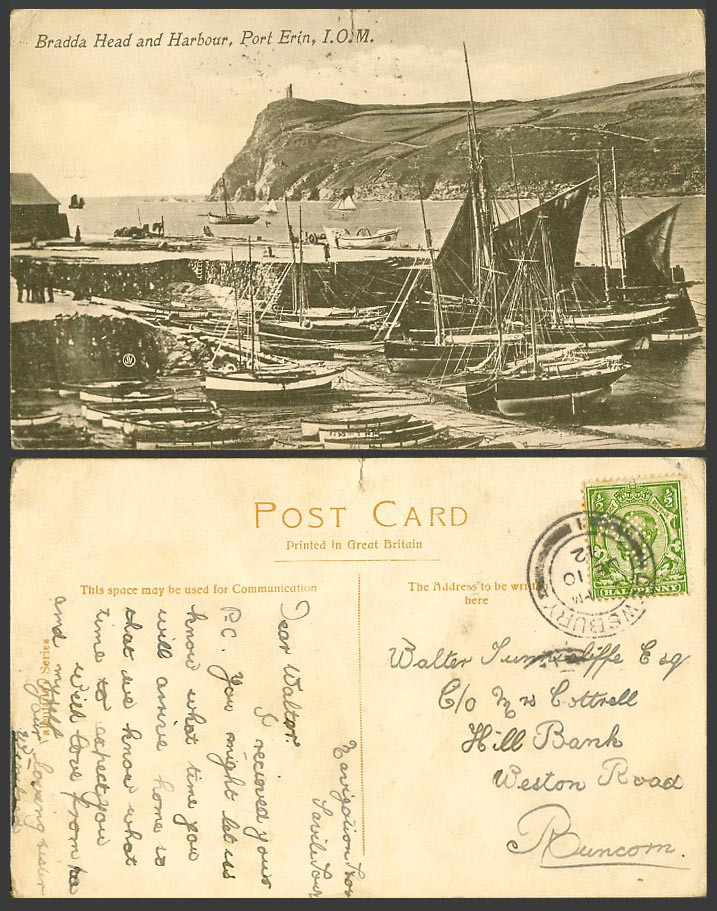 Bradda Head and Harbour, Port Erin, I.O.M.
JV
POST CARD
Printed in Great Britain
This space may be used for Communication
The Address to be written
here
HALF PENNY
Walter Sunderliffe Esq
C/o Mrs Cottrell
Hill Bank
Weston Road
Runcorn.
Navigation
Savile Town
Dear Walter.
I recieved your
P.C. You might let us
know what time you
will arrive home so
that we know what
time to expect you
With love from
and myself
Your loving sister
Series